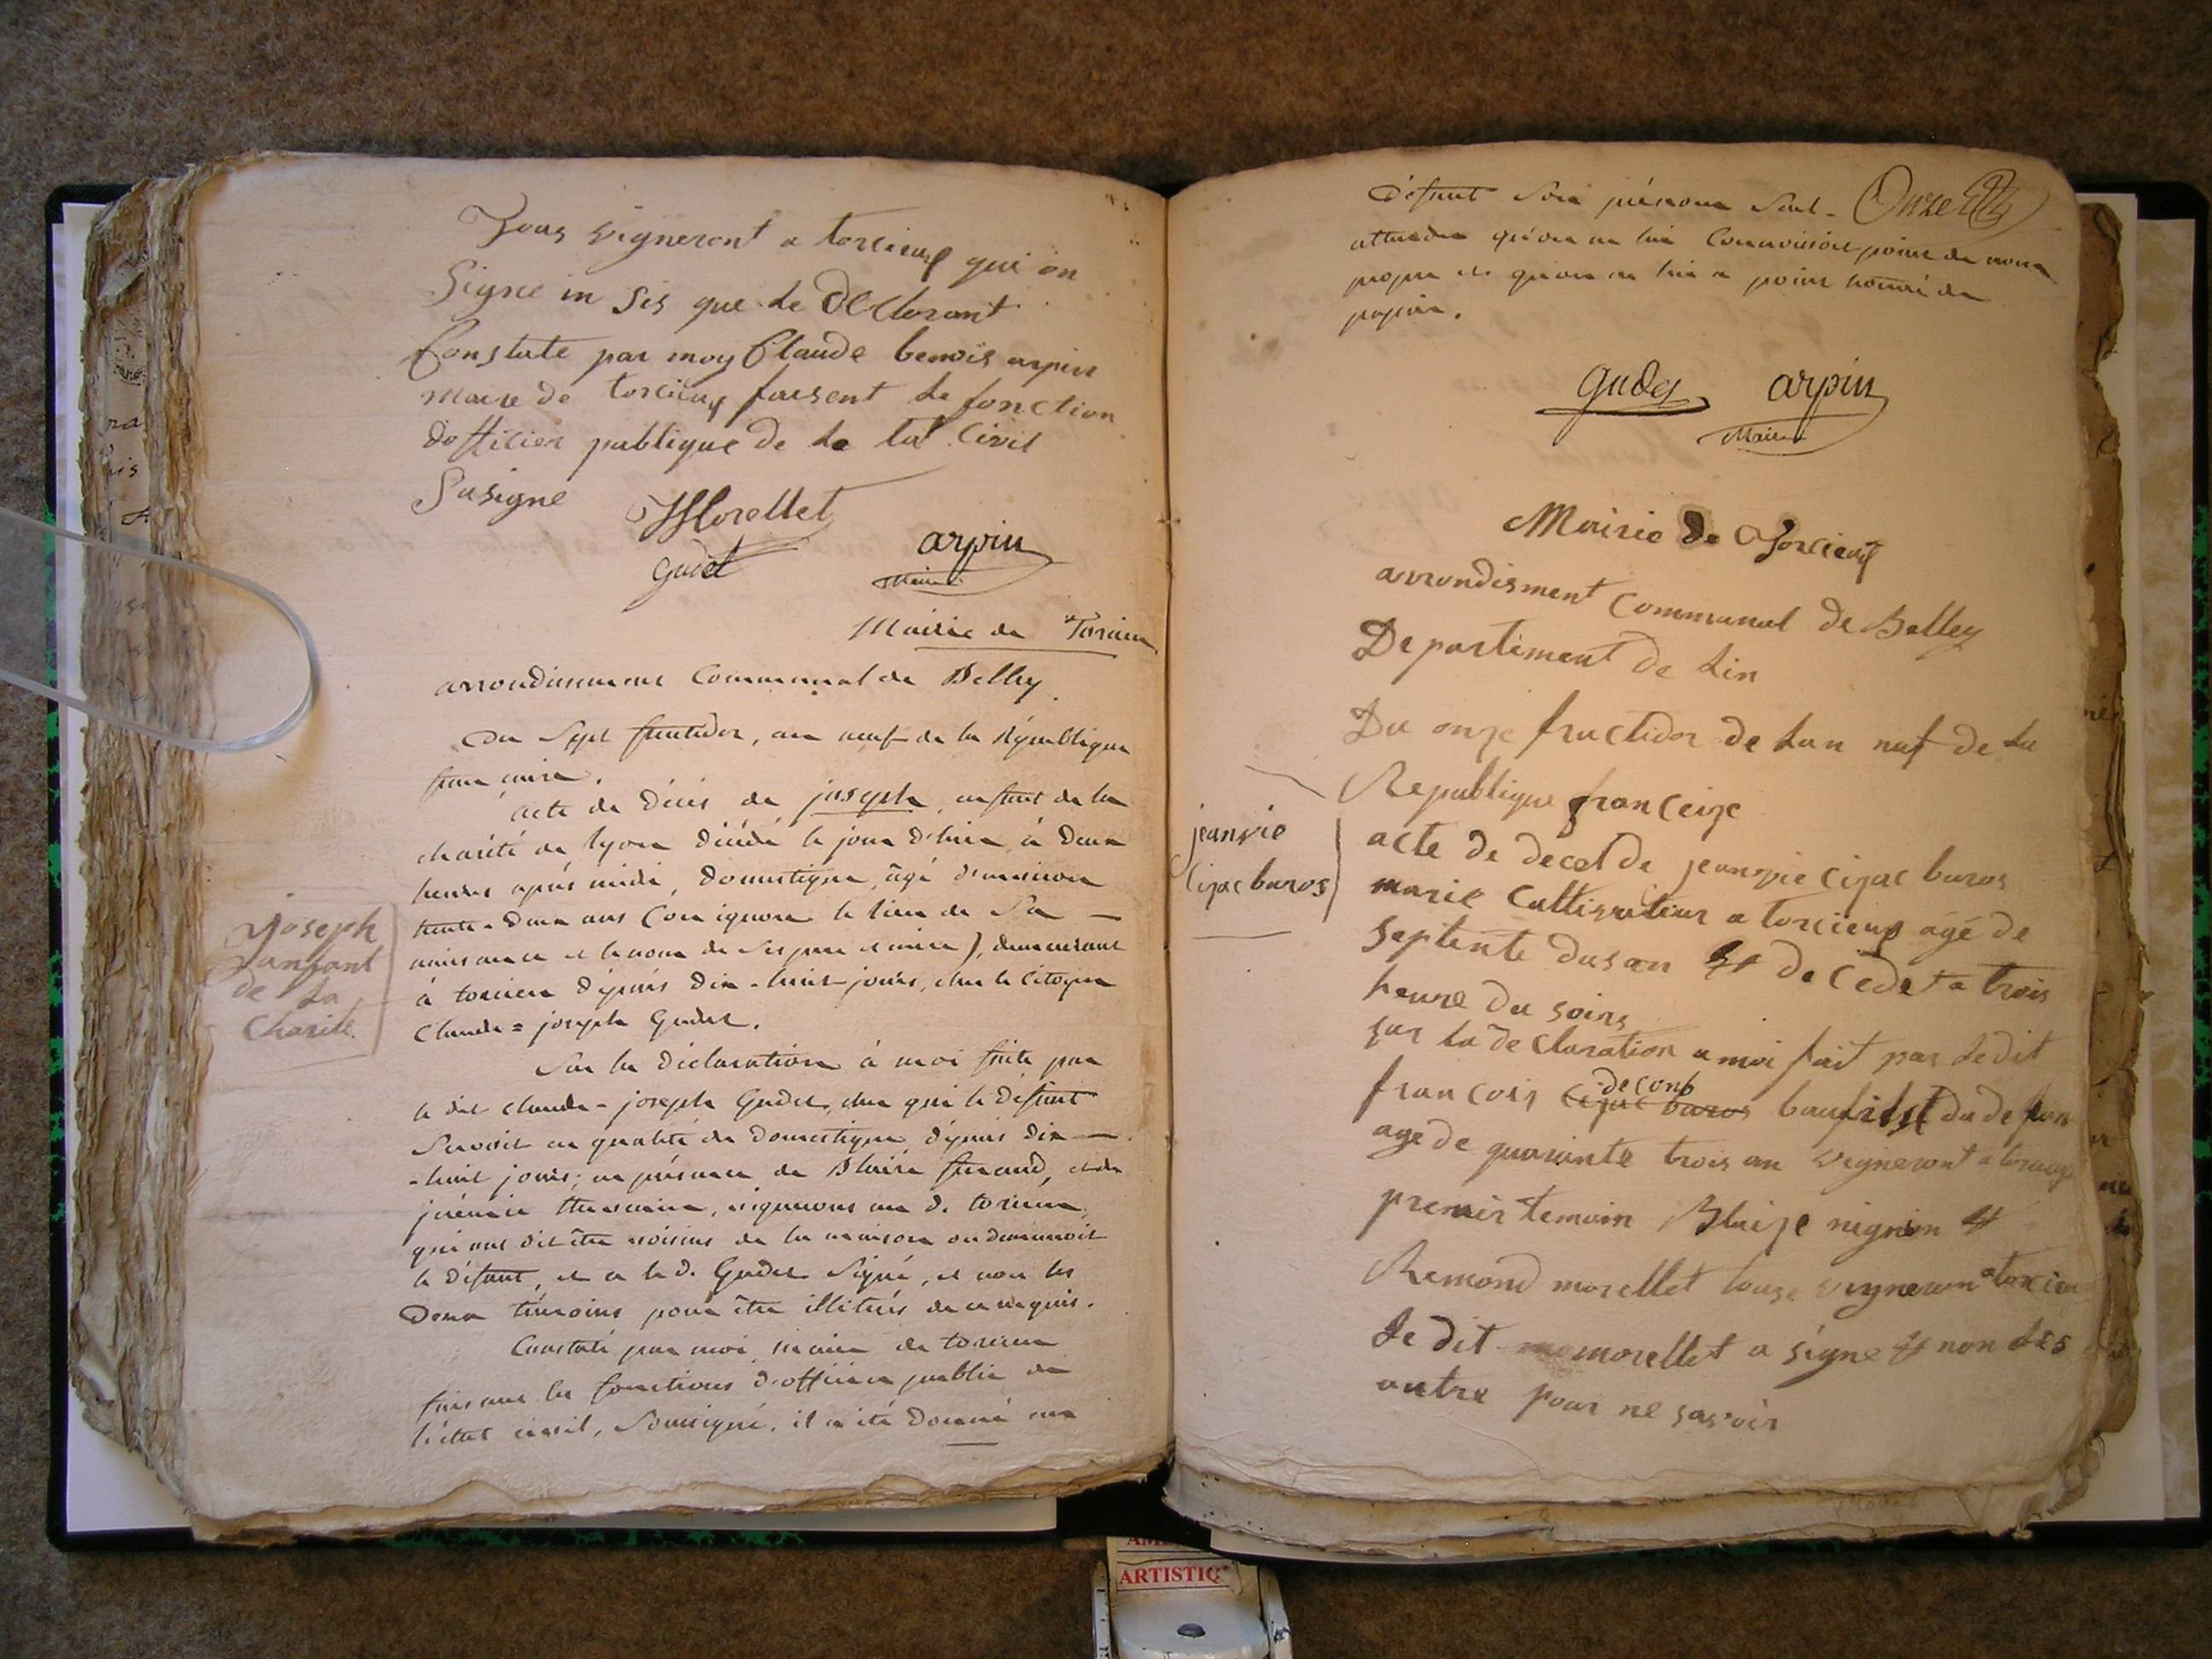 Tous vigneront a torcieux qui on
Signe in sis que le Declorant
Constate par moy Claude benois arpin
maire de torcieux faisent le fonction
dofficier publique de la lta Civil
Susigne
Morellet
gudet
arpin
Maire
Mairie de Torcieu
arrondissement Communal de Belley
du Sept fructidor, an neuf de la République
française.
acte de décès de joseph, enfant de la
charité de lyon décédé le jour d'hier à deux
heures après midi, domestique, âgé d'environ
trente-deux ans (on ignore le lieu de Sa
naissance et le nom de ses pere et mere), demeurant
à torcieu depuis dix-huit-jours, chez le Citoyen
Claude=joseph Gudet.
Joseph
Lanfant
de La
Charité
Sur la déclaration à moi faite par
le dit claude-joseph Gudet, chez qui le défunt
Servoit en qualité de domestique depuis dix-
-huit jours; en présence de Blaise et de
jérémie vignerons au d. torcieu,
qui ont dit être voisins de la maison ou demeuroit
le défunt, et a le d. Gudet Signé, et non les
deux témoins pour être illitérés de ce requis.
Constaté par moi maire de torcieu
faisant les fonctions d'officier public de
l'état civil, Soussigné. il a été donné au
défunt Son prénom seul-
Onze
attendu qu'on ne lui Connoissoit point de nom
propre et qu'on ne lui a point trouvé de
papier.
gudet
arpin
Maire
Mairie de Torcieux
arrondisment Communal de Belley
Departement de Lin
Du onze fructidor de Lan nuf de La
Republique franceize
jeanpie
Cizac buros
acte de decet de jeanpie Cizac buros
marie Cultivateur a torcieux agé de
septente dusan et decedet a trois
heure du soirs
sur la declaration a moi fait par Ledit
francois Cizac buros baufilst du defun
de conb
age de quarante trois an vigneront a torcieux
premir temoin Blaize nignon et
Remond morellet tous vigneron a torcieu
Le dit morellet a signe et non Les
autre pour ne savoir
ARTISTIQ